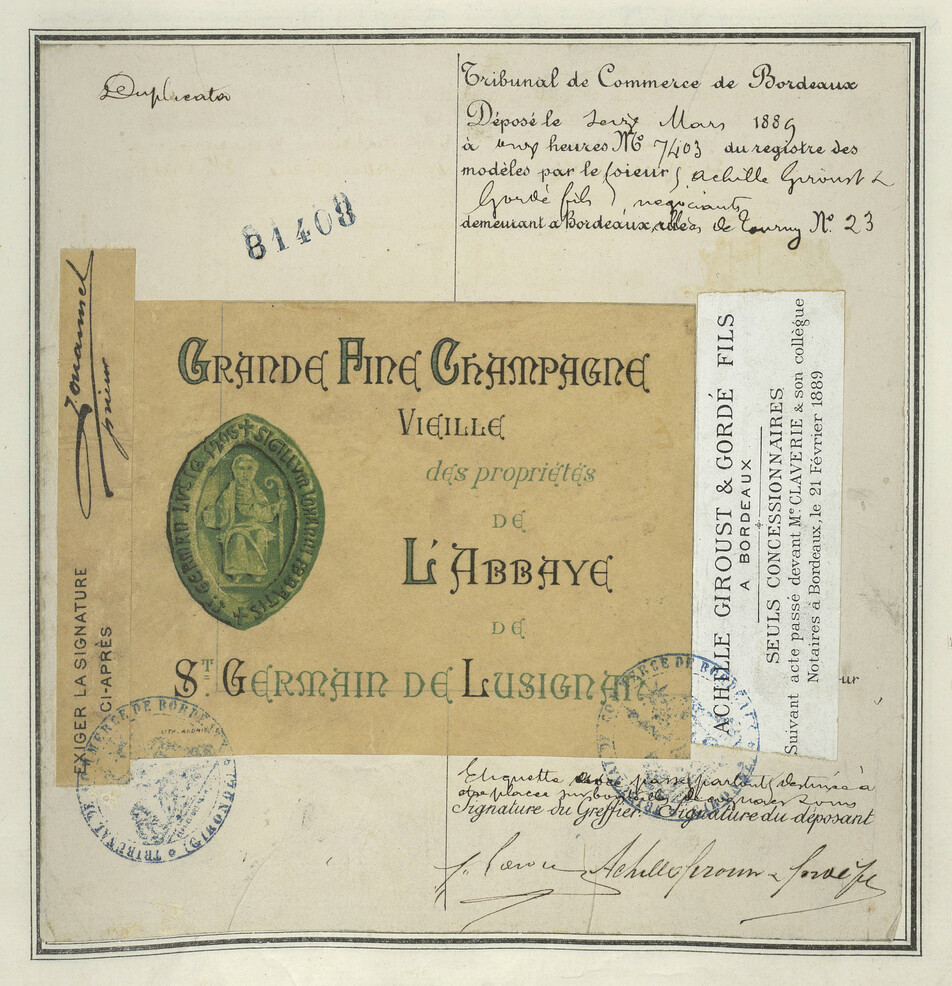 Duplicata
Tribunal de Commerce de Bordeaux
Déposé le seize Mars 1889
à onze heures No 7403 du registre des
modèles par le (sieur) Achille Giroust &
Gordé fils négociants
demeurant a Bordeaux, allées de Tourny No. 23
81403
EXIGER LA SIGNATURE
CI-APRÈS
prieur
GRANDE FINE CHAMPAGNE
VIEILLE
des propriétés
DE
L'ABBAYE
DE
ST GERMAIN DE LUSIGNAN
ACHILLE GIROUST & GORDÉ FILS
A BORDEAUX
SEULS CONCESSIONNAIRES
Suivant acte passé devant Me CLAVERIE & son collègue
Notaires à Bordeaux, le 21 Février 1889
ur
Etiquette passe partout destinée à
être placée sur bouteilles de cognac
Signature du Greffier. Signature du déposant
Achille Giroust & Gordé fils
TRIBUNAL DE COMMERCE DE BORDEAUX (GIRONDE)
TRIBUNAL DE COMMERCE DE BORDEAUX (GIRONDE)